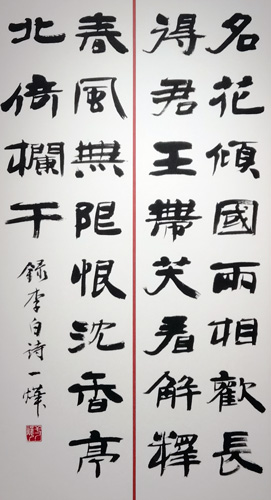 名花傾國兩相歡長
得君王帶笑看解釋
春風無限恨沈香亭
北倚欄干
録李白诗一燁